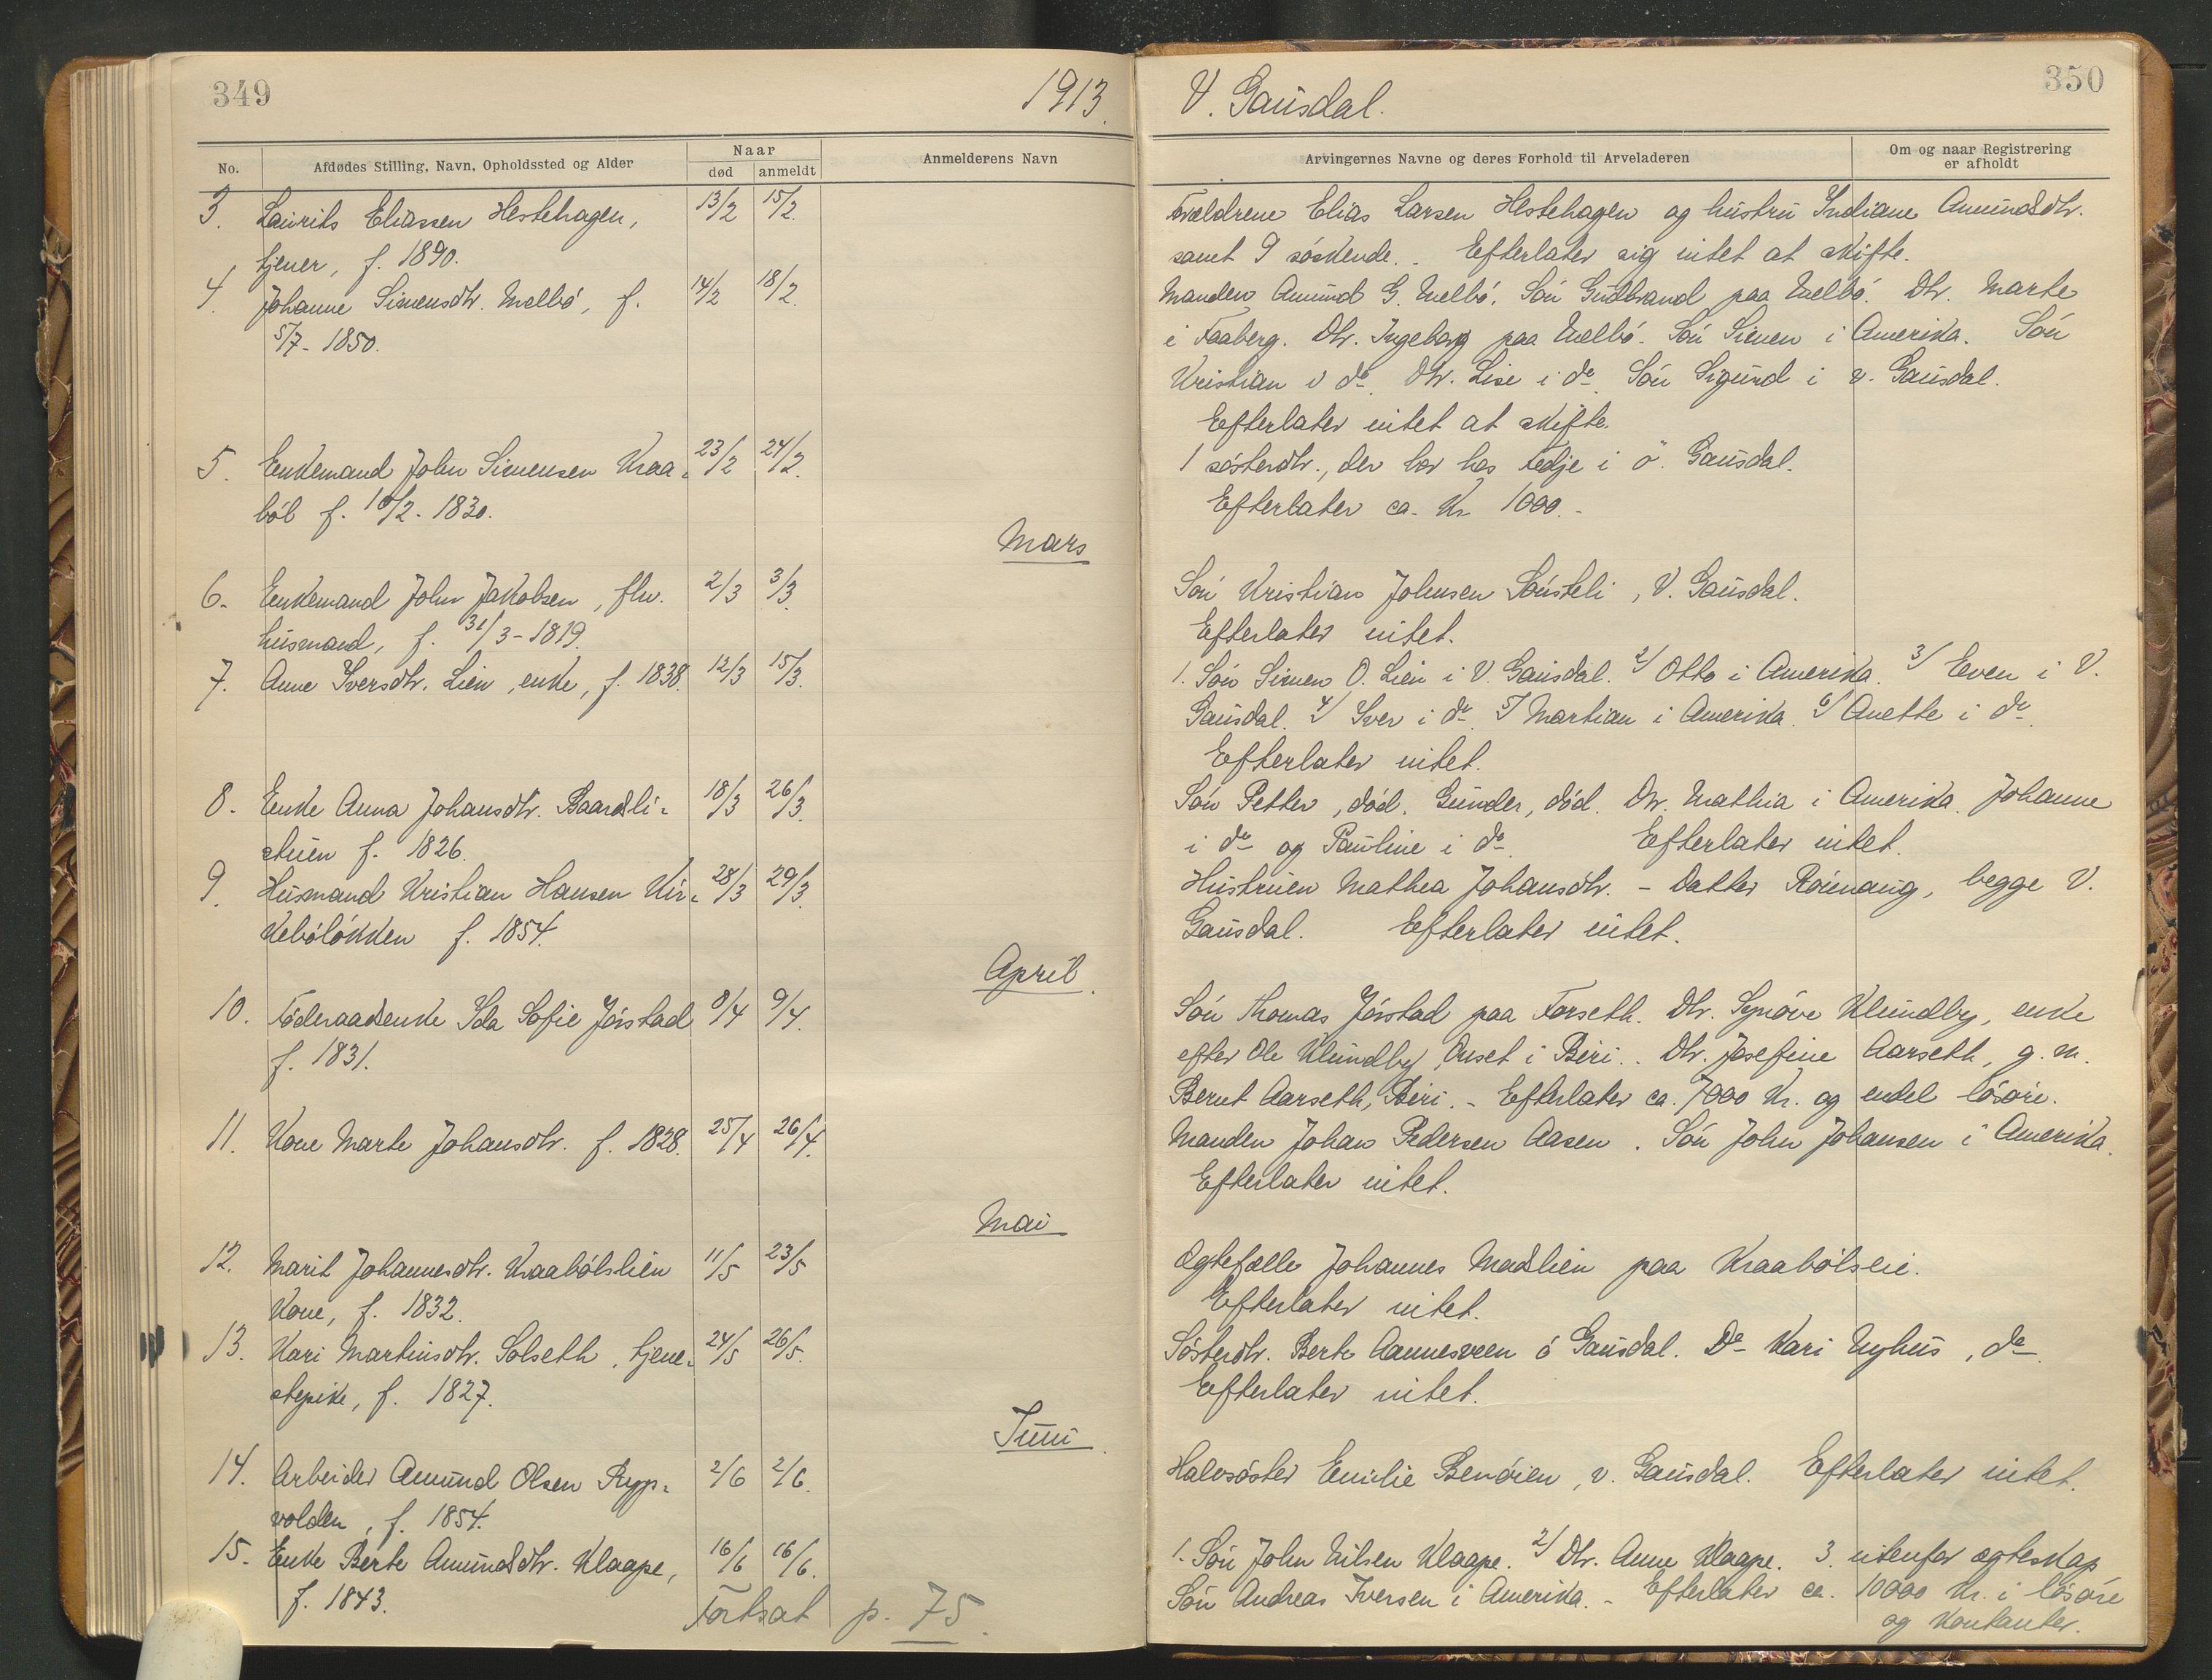 349
1913.
No.
Afdødes Stilling, Navn, Opholdssted og Alder
Naar
død
anmeldt
Anmelderens Navn
3. Laurits Eliassen Hestehagen, 13/2 15/2.
tjener, f. 1890.
4. Johanne Simensdtr. Melbö, f. 14/2 18/2.
5/7 - 1850.
5. Enkemand John Simensen Kraa- 23/2 24/2.
böl f. 10/2 - 1830.
Mars
6. Enkemand John Jakobsen, fhv. 2/3 3/3.
husmand, f. 31/3 - 1819.
7. Anne Iversdtr. Lien, enke, f. 1838. 12/3 15/3.
8. Enke Anna Johansdtr. Baardsli- 18/3 26/3.
stuen f. 1826.
9. Husmand Kristian Hansen Kir- 28/3 29/3.
kebölökken f. 1854.
April.
10. Föderaadsenke Ida Sofie Jörstad 8/4 9/4.
f. 1831.
11. Kone Marte Johansdtr. f. 1828. 25/4 26/4.
Mai
12. Marit Johannesdtr. Kraabölslien 11/5 23/5
Kone, f. 1832.
13. Kari Martinsdtr. Solseth, tjene- 24/5 26/5.
stepike, f. 1827.
Juni.
14. Arbeider Amund Olsen Ryp- 2/6 2/6.
volden, f. 1854.
15. Enke Berte Amundsdtr. Klaape, 16/6 16/6.
f. 1843.
Fortsat p. 75.
350
V. Gausdal.
Arvingernes Navne og deres Forhold til Arveladeren
Om og naar Registrering
er afholdt
Forældrene Elias Larsen Hestehagen og hustru Indiane Amundsdtr.
samt 9 söskende. Efterlater sig intet at skifte.
Manden Amund G. Melbö. Sön Gudbrand paa Melbö. Dtr. Marte
i Faaberg. Dtr. Ingeborg paa Melbö. Sön Simen i Amerika. Sön
Kristian i do. Dtr. Lise i do. Sön Sigurd i v. Gausdal.
Efterlater intet at skifte.
1 sösterdtr., der bor hos Fedje i ö. Gausdal.
Efterlater ca. Kr. 1000.-
Sön Kristian Johnsen Sönsteli, V. Gausdal.
Efterlater intet.
1. Sön Simen O. Lien i V. Gausdal. 2/ Otto i Amerika. 3/ Even i V.
Gausdal. 4/ Iver i do. 5/ Martian i Amerika. 6/ Anette i do.
Efterlater intet.
Sön Petter, död. Gunder, död. Dtr. Mathia i Amerika. Johanne
i do og Pauline i do. Efterlater intet.
Hustruen Mathea Johansdtr. - Datter Rönnaug, begge V.
Gausdal. Efterlater intet.
Sön Thomas Jörstad paa Forseth. Dtr. Synöve Klundby, enke
efter Ole Klundby, Onset i Biri. Dtr. Josefine Aarseth, g. m.
Bernt Aarseth, Biri. - Efterlater ca. 7000 Kr. og endel lösöre.
Manden Johan Pedersen Aasen. Sön John Johansen i Amerika.
Efterlater intet.
Ægtefælle Johannes Madslien paa Kraabölseie.
Efterlater intet.
Sösterdtr. Berte Aannesveen ö Gausdal. Do Kari Nyhus, do.
Efterlater intet.
Halvsöster Emilie Benöien, v. Gausdal. Efterlater intet.
1. Sön John Nilsen Klaape. 2/ Dtr. Anne Klaape. 3. utenfor ægteskap
Sön Andreas Iversen i Amerika. - Efterlater ca. 10000 Kr. i lösöre
og Kontanter.